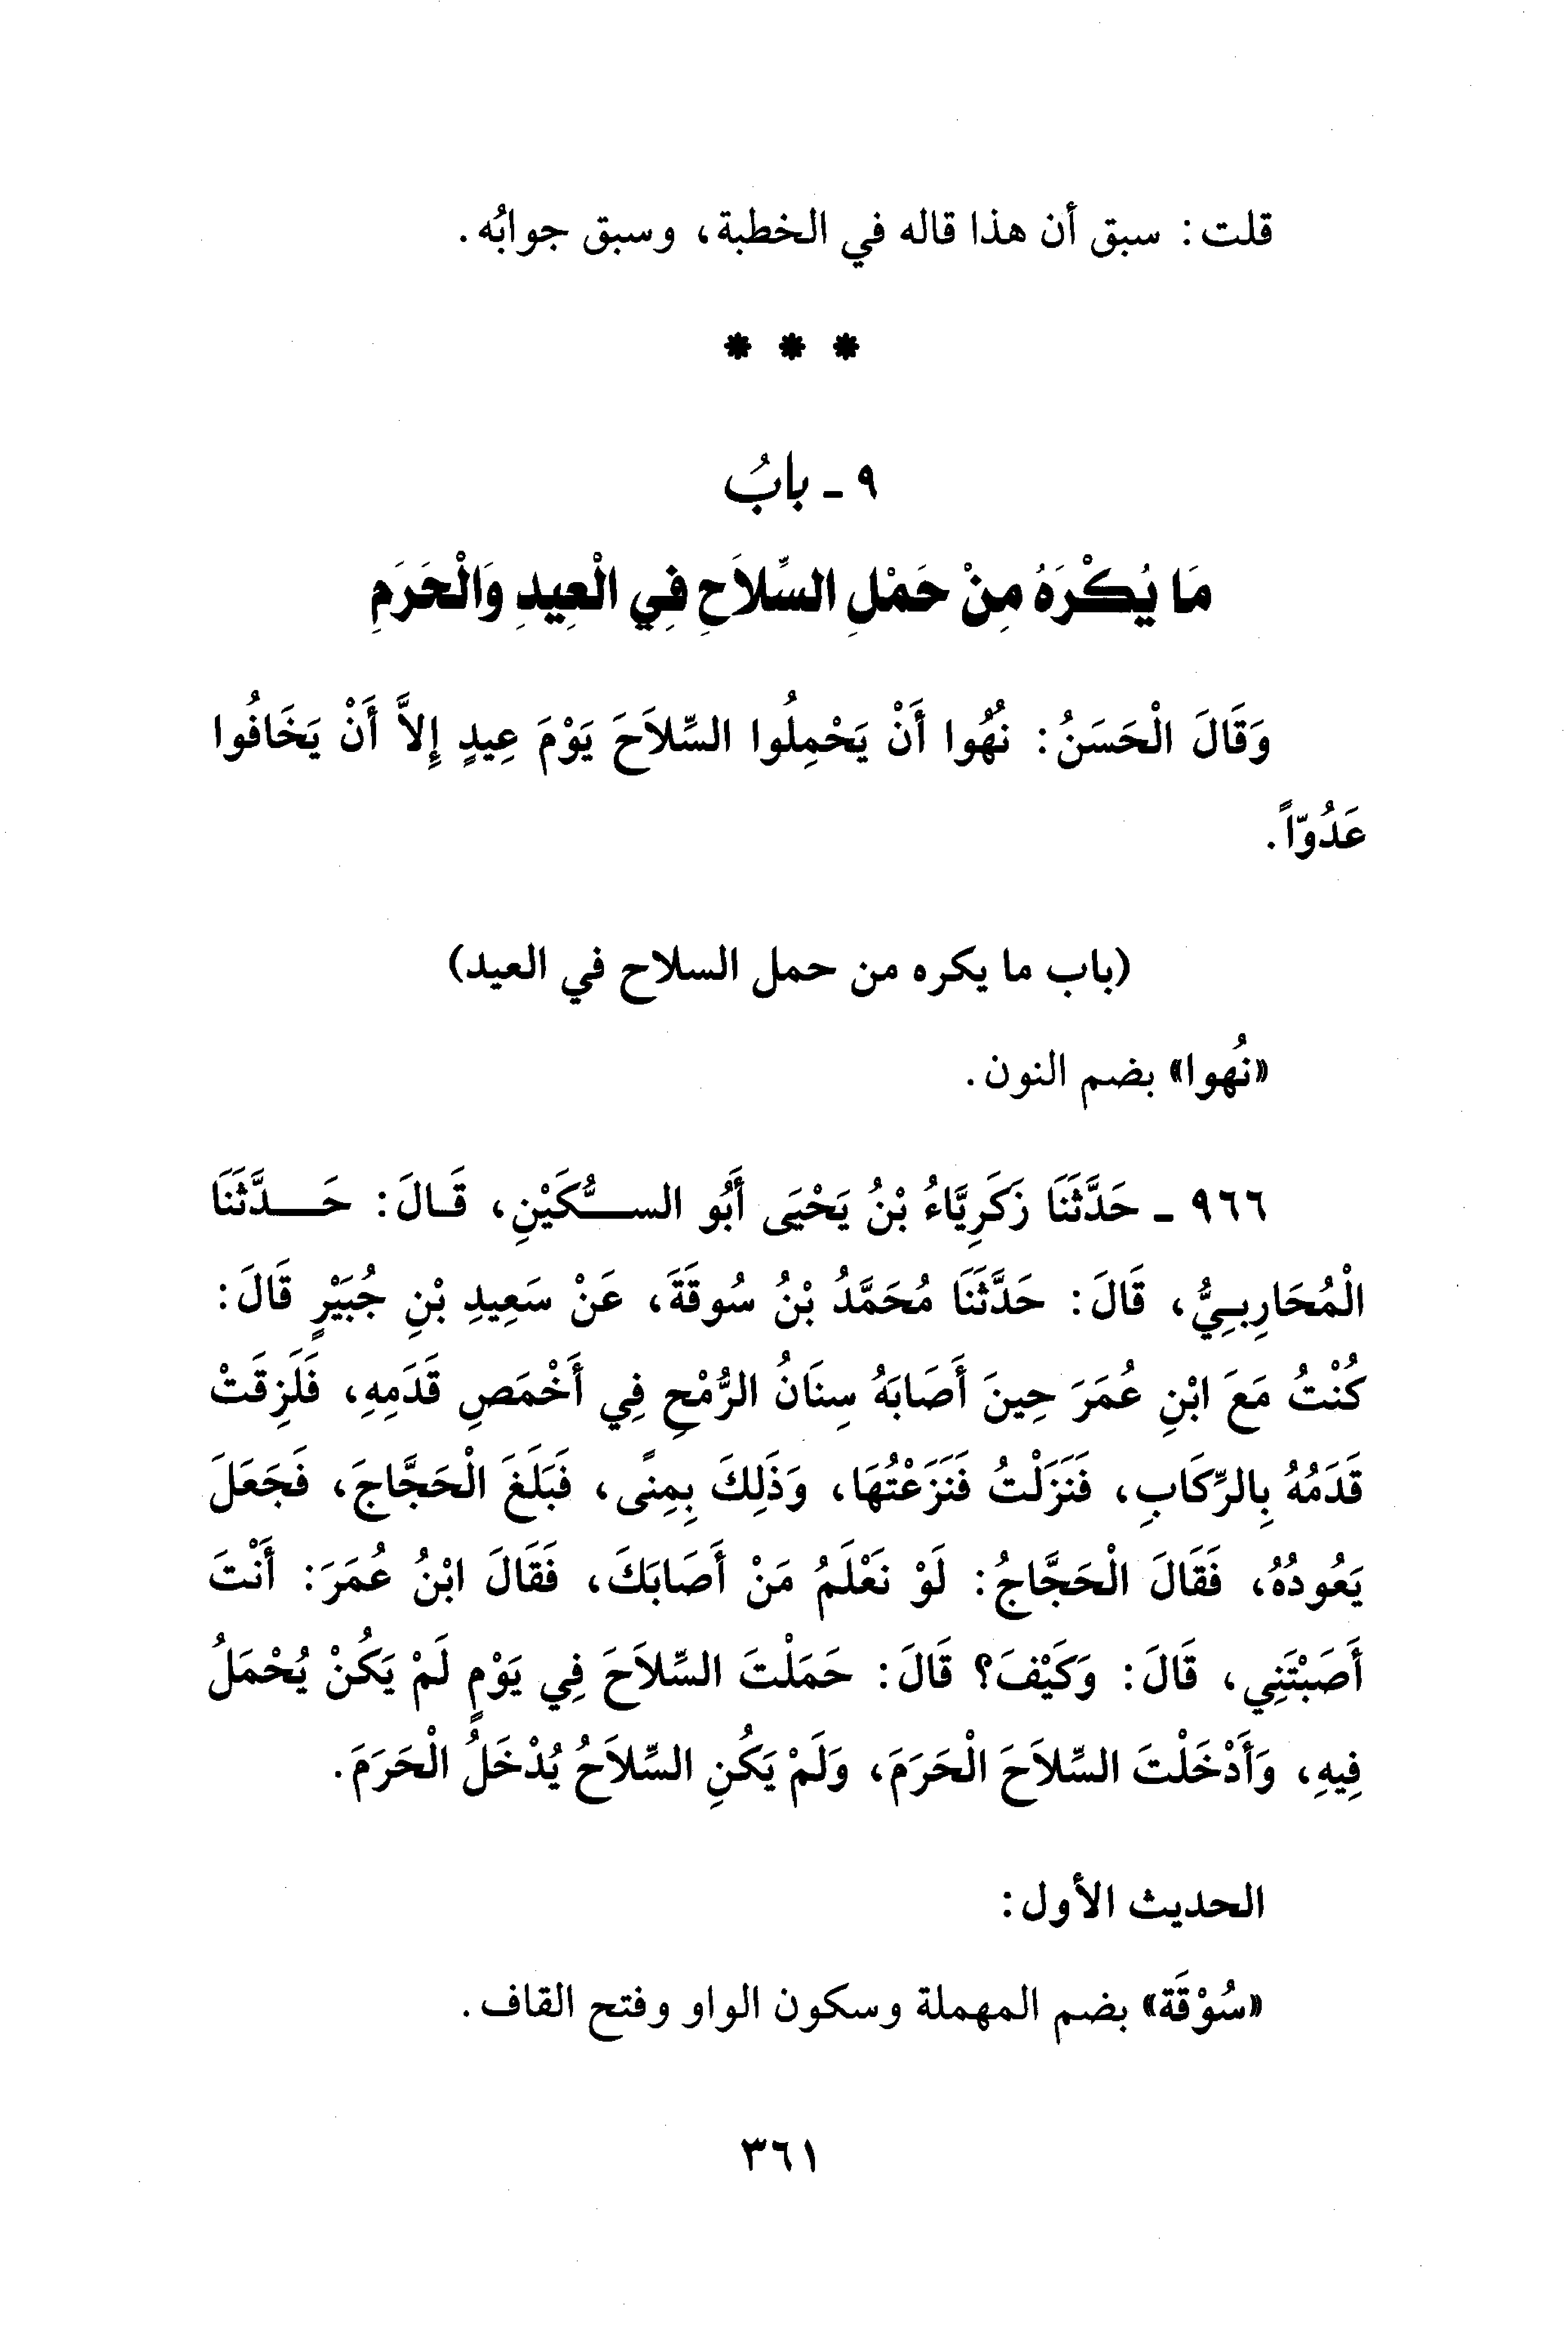 قلت: سبق أن هذا قاله في الخطبة، وسبق جوابُه.
* * *
٩ - بابُ
مَا يُكْرَهُ مِنْ حَمْلِ السِّلاَحِ فِي الْعِيدِ وَالْحَرَمِ
وَقَالَ الْحَسَنُ: نُهُوا أَنْ يَحْمِلُوا السِّلاَحَ يَوْمَ عِيدٍ إِلاَّ أَنْ يَخَافُوا
عَدُوّاً.
(باب ما يكره من حمل السلاح في العيد)
«نُهوا» بضم النون.
٩٦٦ - حَدَّثَنَا زَكَرِيَّاءُ بْنُ يَحْيَى أَبُو السُّكَيْنِ، قَالَ: حَدَّثَنَا
الْمُحَارِبِيُّ، قَالَ: حَدَّثَنَا مُحَمَّدُ بْنُ سُوقَةَ، عَنْ سَعِيدِ بْنِ جُبَيْرٍ قَالَ:
كُنْتُ مَعَ ابْنِ عُمَرَ حِينَ أَصَابَهُ سِنَانُ الرُّمْحِ فِي أَخْمَصِ قَدَمِهِ، فَلَزِقَتْ
قَدَمُهُ بِالرِّكَابِ، فَنَزَلْتُ فَنَزَعْتُهَا، وَذَلِكَ بِمِنًى، فَبَلَغَ الْحَجَّاجَ، فَجَعَلَ
يَعُودُهُ، فَقَالَ الْحَجَّاجُ: لَوْ نَعْلَمُ مَنْ أَصَابَكَ، فَقَالَ ابْنُ عُمَرَ: أَنْتَ
أَصَبْتَنِي، قَالَ: وَكَيْفَ؟ قَالَ: حَمَلْتَ السِّلاَحَ فِي يَوْمٍ لَمْ يَكُنْ يُحْمَلُ
فِيهِ، وَأَدْخَلْتَ السِّلاَحَ الْحَرَمَ، وَلَمْ يَكُنِ السِّلاَحُ يُدْخَلُ الْحَرَمَ.
الحديث الأول:
«سُوْقَة» بضم المهملة وسكون الواو وفتح القاف.
٣٦١